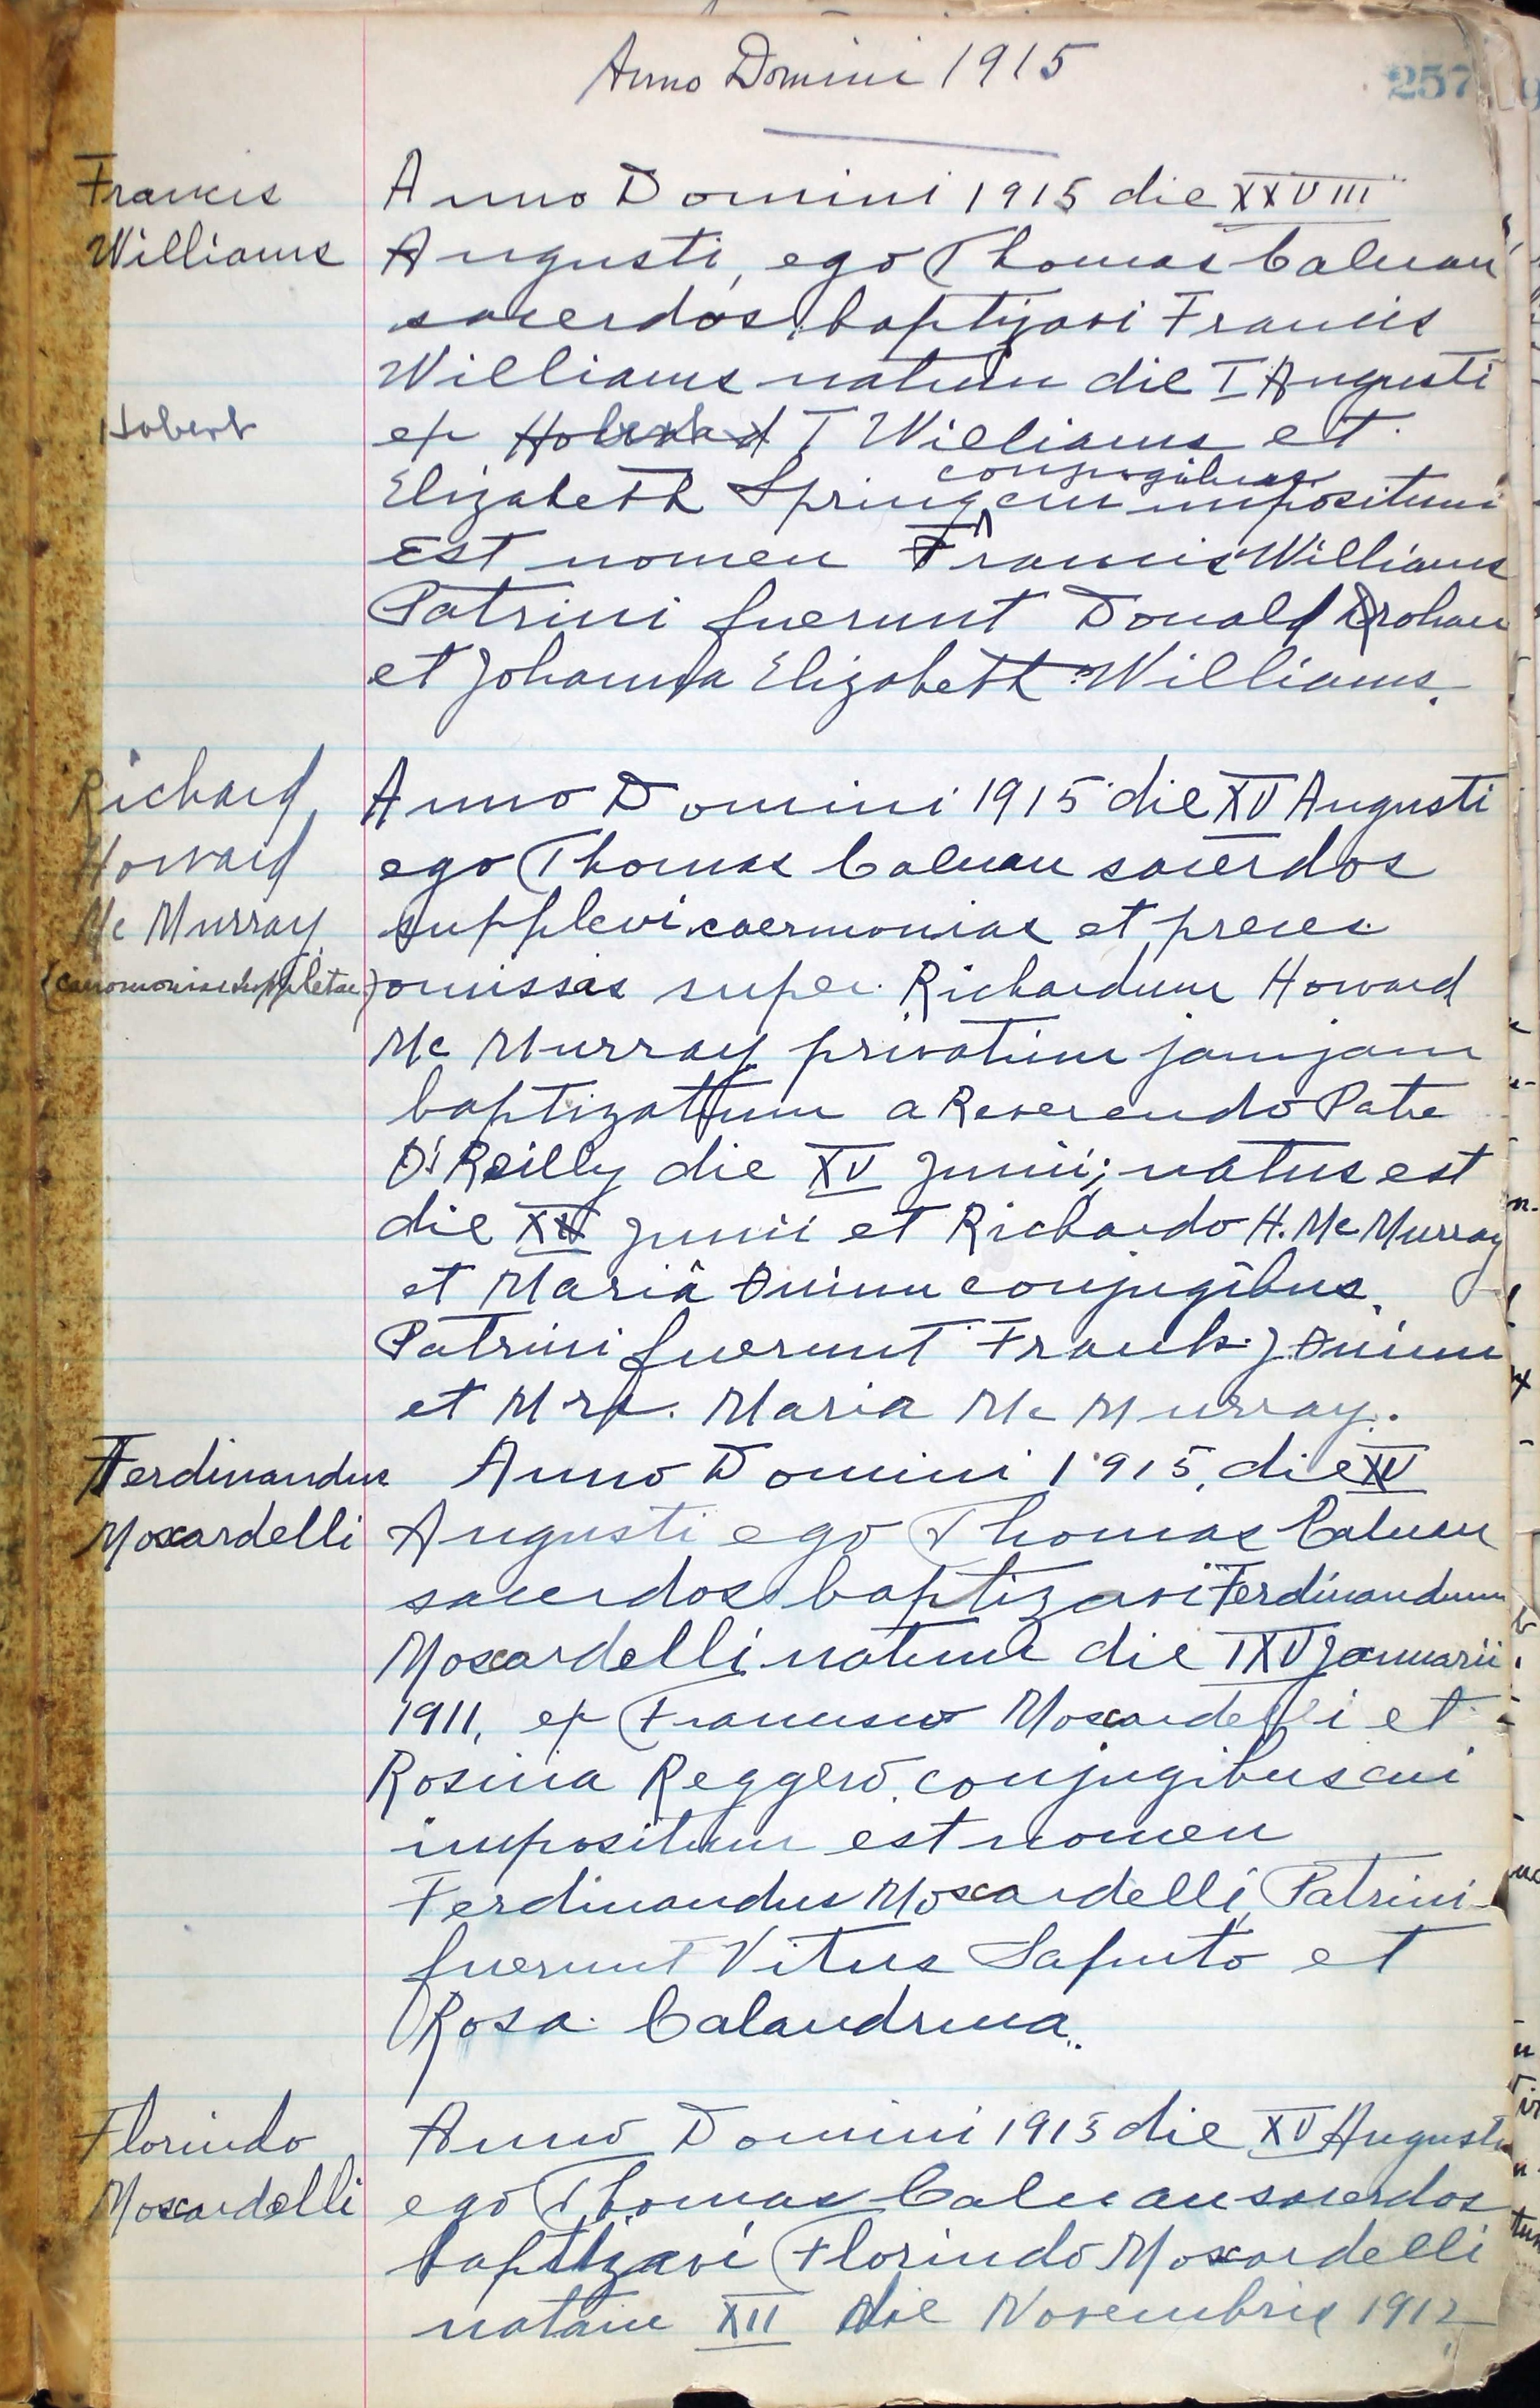 Anno Domini 1915
257
Francis
Williams
Anno Domini 1915 die XXVIII
Augusti, ego Thomas Calnan
sacerdos baptizavi Francis
Williams natum die I Augusti
Hobert
ex T Williams et
conjugibus
Elizabeth Spring cui impositum
est nomen Francis Williams
Patrini fuerunt Donald Drohan
et Johanna Elizabeth Williams.
Richard
Howard
Mc Murray
(caeromoniae suppletae)
Anno Domini 1915 die XV Augusti
ego Thomas Calnan sacerdos
supplevi caermonias et preces
omissas super Richardum Howard
Mc Murray privatim jamjam
baptizatum a Reverendo Patre
O'Reilly die XV Junii; natus est
die Junii et Richardo H. Mc Murray
et Mariâ Quinn conjugibus.
Patrini fuerunt Frank J Quinn
et Mrs. Maria Mc Murray.
Ferdinandus
Moscardelli
Anno Domini 1915, die XV
Augusti ego Thomas Calnan
sacerdos baptizavi Ferdinandum
Moscardelli natum die IXV Januarii
1911, ex Francisco Moscardelli et
Rosina Reggero conjugibus cui
impositum est nomen
Ferdinandus Moscardelli, Patrini
fuerunt Vitus Saputo et
Rosa Calandrina.
Florindo
Moscardelli
Anno Domini 1915 die XV Augusti
ego Thomas Calnan sacerdos
baptizavi Florindo Moscardelli
natam XII die Novembris 1912